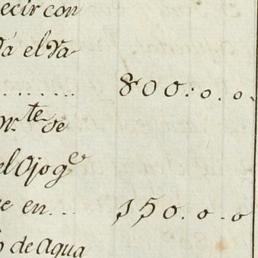 ecir con
dá el Va-
........ 800:o.o.
m.te de
el Ojo q.e
e en... 150.o.o
de Agua